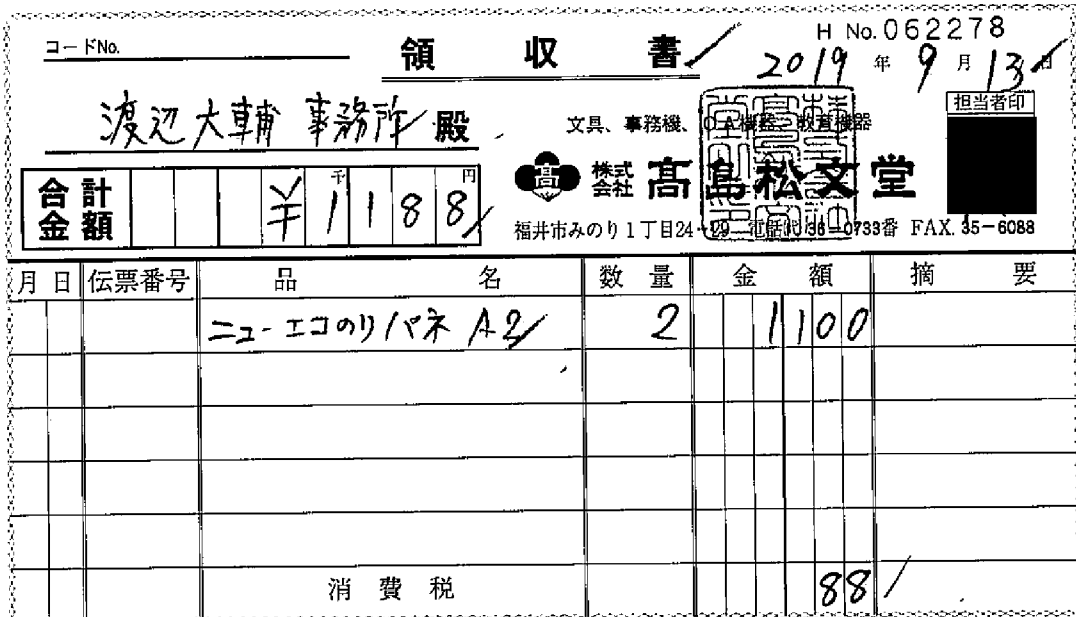 コードNo.
領収書
H No.062278
2019年9月13日
渡辺大輔事務所殿
担当者印
文具、事務機、OA機器、教育機器
株式会社 髙島松文堂
合計金額 ¥1188
千 円
福井市みのり1丁目24-29 電話(代)36-0733番 FAX.35-6088
月 日 伝票番号 品名 数量 金額 摘要
ニューエコのりパネ A2 2 1100
消費税 88